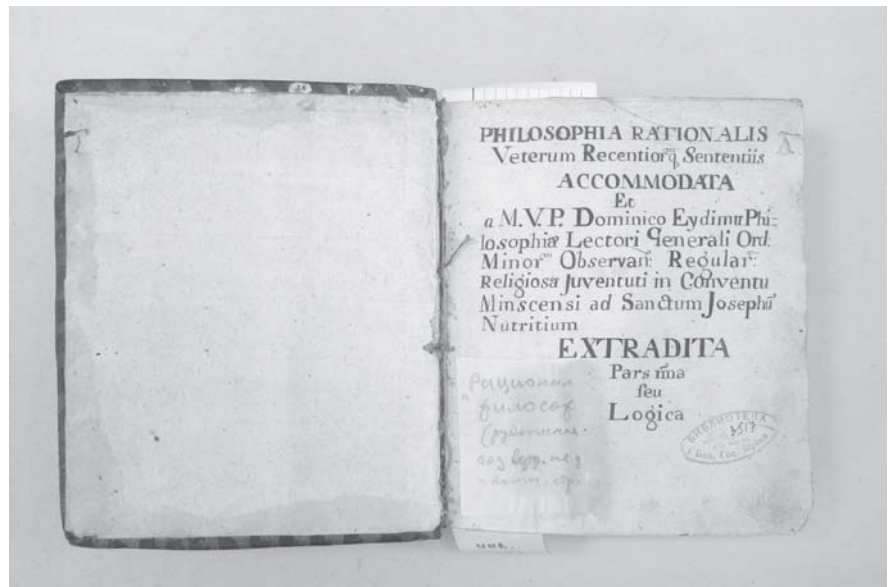 PHILOSOPHIA RATIONALIS
Veterum Recentiorq̃ Sententiis
ACCOMMODATA
Et
a M.V.P. Dominico Eydimtt Phi-
losophiæ Lectori Generali Ord:
Minorum Observan: Regular:
Religiosæ Juventuti in Conventu
Minscensi ad Sanctum Josephũ
Nutritium
EXTRADITA
Pars ima
seu
Logica
Рационал
философ
БИБЛИОТЕКА
3517
Бел. Гос. Музея